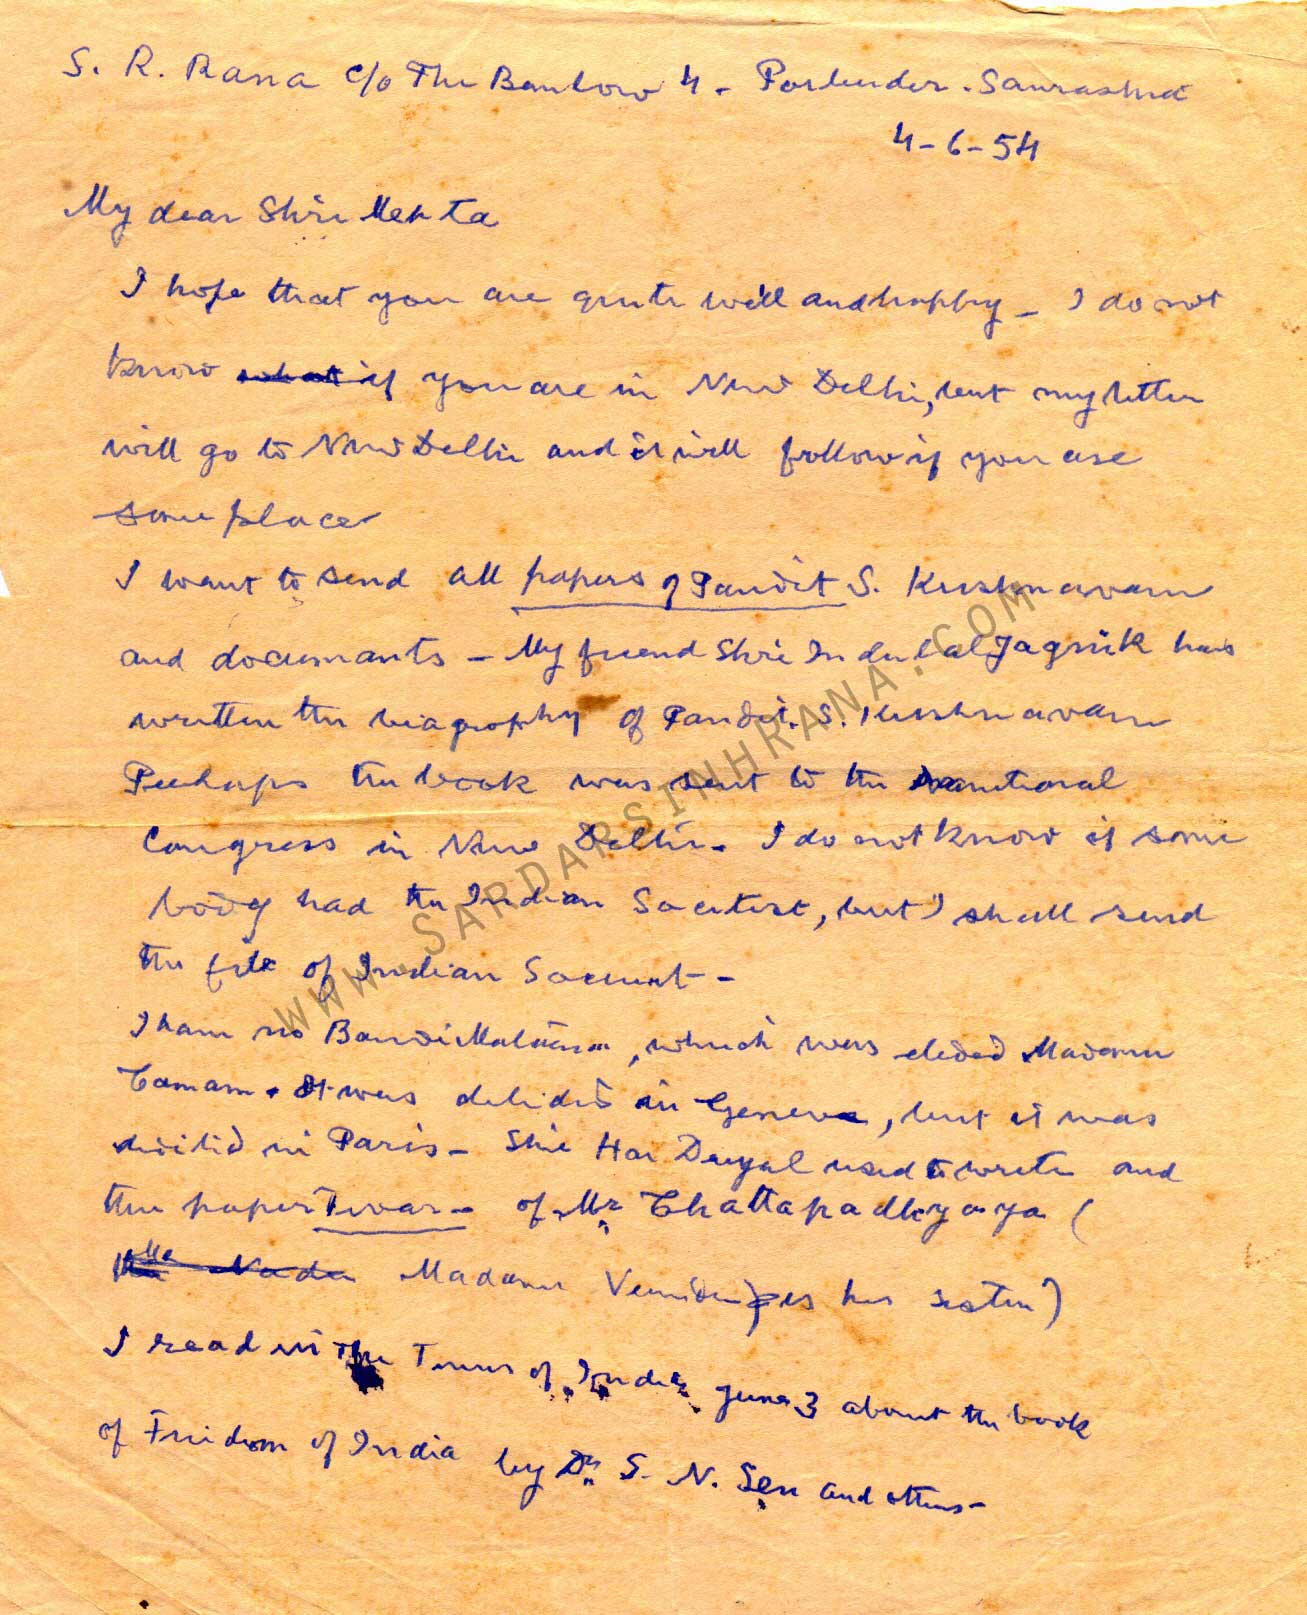 S. R. Rana c/o The Banlow 4 - Porbunder. Saurashtra
4-6-54
My dear Shri Mehta
I hope that you are quite well and happy - I do not
know what if you are in New Delhi, but my letter
will go to New Delhi and it will follow if you are
some place
I want to send all papers of Pandit S. Krishnavarm
and documants - My friend Shri Indulal Jagnik has
written the biagrophy of Pandit. S. Krishnavarm
Perhaps the book was sent to the national
Congress in New Delhi - I do not know if some
body had the Indian Socitist, but I shall send
the file of Indian Sociust -
I have no Bandi Mataram, which was Madame
Camam. It was in Geneva, but it was
in Paris - Shri Har Dayal used to write and
the paper Tvar - of Mr Chattapadhyaya (
Madame is her sister)
I read in the Times of India June 3 about the book
of Freidom of India by Dr S. N. Sen and others -
WWW.SARDARSINHRANA.COM